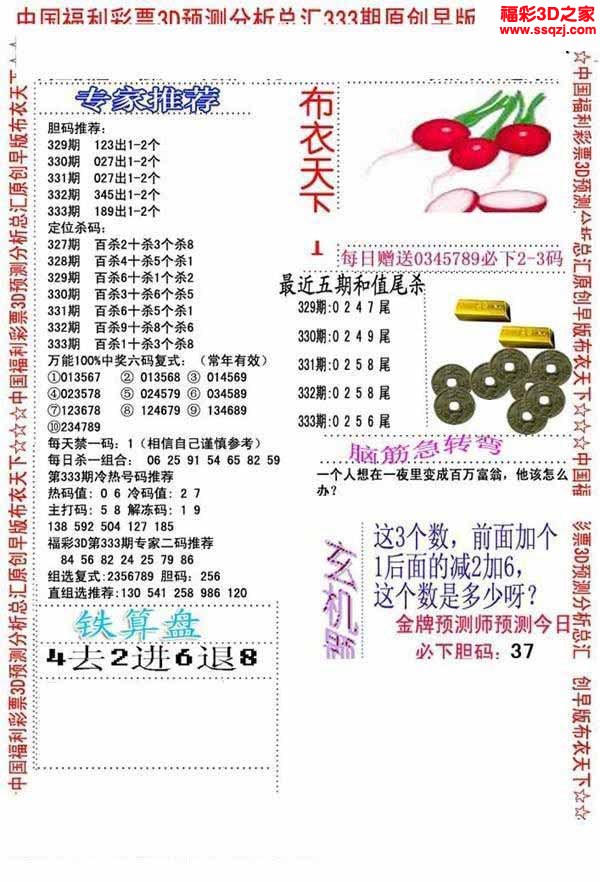 中国福利彩票3D预测分析总汇333期原创早版
福彩3D之家
www.ssqzj.com
☆中国福利彩票3D预测分析总汇原创早版布衣天下☆☆☆中国福利彩票3D预测分析总汇原创早版布衣天
专家推荐
胆码推荐:
329期 123出1-2个
330期 027出1-2个
331期 027出1-2个
332期 345出1-2个
333期 189出1-2个
定位杀码:
327期 百杀2十杀3个杀8
328期 百杀4十杀5个杀1
329期 百杀6十杀1个杀2
330期 百杀3十杀6个杀5
331期 百杀6十杀5个杀1
332期 百杀9十杀8个杀6
333期 百杀1十杀3个杀8
万能100%中奖六码复式:（常年有效）
①013567 ②013568 ③014569
④023578 ⑤024579 ⑥034589
⑦123678 ⑧124679 ⑨134689
⑩234789
每天禁一码: 1（相信自己谨慎参考）
每日杀一组合: 06 25 91 54 65 82 59
第333期冷热号码推荐
热码值: 0 6 冷码值: 2 7
主打码: 5 8 解冻码: 1 9
138 592 504 127 185
福彩3D第333期专家二码推荐
84 56 82 24 25 79 86
组选复式:2356789 胆码: 256
直组选推荐:130 541 258 986 120
铁算盘
4去2进6退8
布衣天下
每日赠送0345789必下2-3码
最近五期和值尾杀
329期:0 2 4 7 尾
330期:0 2 4 9 尾
331期:0 2 5 8 尾
332期:0 2 5 8 尾
333期:0 2 5 6 尾
脑筋急转弯
一个人想在一夜里变成百万富翁，他该怎么
办?
玄机
这3个数，前面加个
1后面的减2加6，
这个数是多少呀?
金牌预测师预测今日
必下胆码: 37
☆中国福利彩票3D预测分析总汇原创早版布衣天下☆☆☆中国福
彩票3D预测分析总汇 创早版布衣天下☆☆